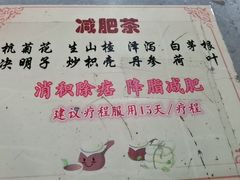 减肥茶
杭菊花 生山楂 泽泻 白茅根
决明子 炒枳壳 丹参 荷叶
消积除痞 降脂减肥
建议疗程服用15天/疗程